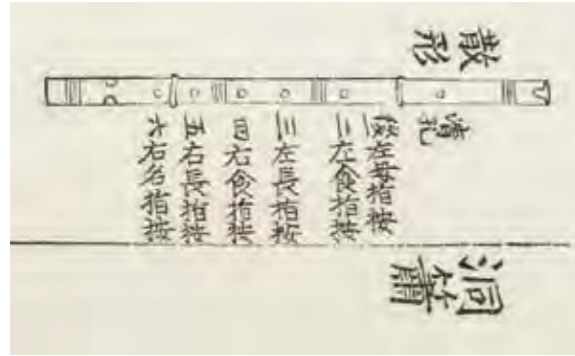 散形
清孔
後一左母指按
二左食指按
三左長指按
四右食指按
五右長指按
六右名指按
洞簫